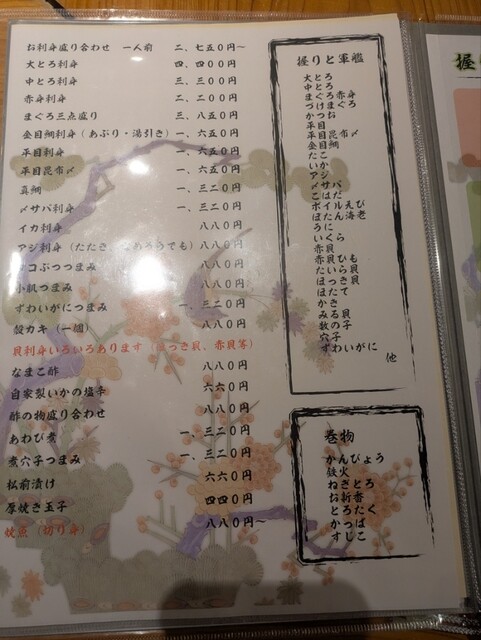 お刺身盛り合わせ 一人前 二、七五〇円〜
大とろ刺身 四、四〇〇円
中とろ刺身 三、三〇〇円
赤身刺身 二、二〇〇円
まぐろ三点盛り 三、八五〇円
金目鯛刺身(あぶり・湯引き) 一、六五〇円
平目刺身 一、六五〇円
平目昆布〆 一、六五〇円
真鯛 一、三二〇円
〆サバ刺身 一、三二〇円
イカ刺身 八八〇円
アジ刺身(たたき なめろうでも) 八八〇円
タコぶつつまみ 八八〇円
小肌つまみ 八八〇円
ずわいがにつまみ 一、三二〇円
殻カキ(一個) 八八〇円
貝刺身いろいろあります(ほっき貝、赤貝等)
なまこ酢 八八〇円
自家製いかの塩辛 六六〇円
酢の物盛り合わせ 八八〇円
あわび煮 一、三二〇円
煮穴子つまみ 一、三二〇円
松前漬け 六六〇円
厚焼き玉子 四四〇円
焼魚(切り身) 八八〇円〜
握りと軍艦
大とろ
中とろ
まぐろ赤身
づけまぐろ
かつお
平目
平目昆布〆
金目鯛
たこ
いか
アジ
〆サバ
こはだ
ボイルえび
ぼたん海老
うに
いくら
赤貝
赤貝ひも
たいら貝
ほっき貝
ほたて
かき
みる貝
数の子
穴子
ずわいがに
他
巻物
かんぴょう
鉄火
ねぎとろ
お新香
とろたく
かっぱ
すじこ
握